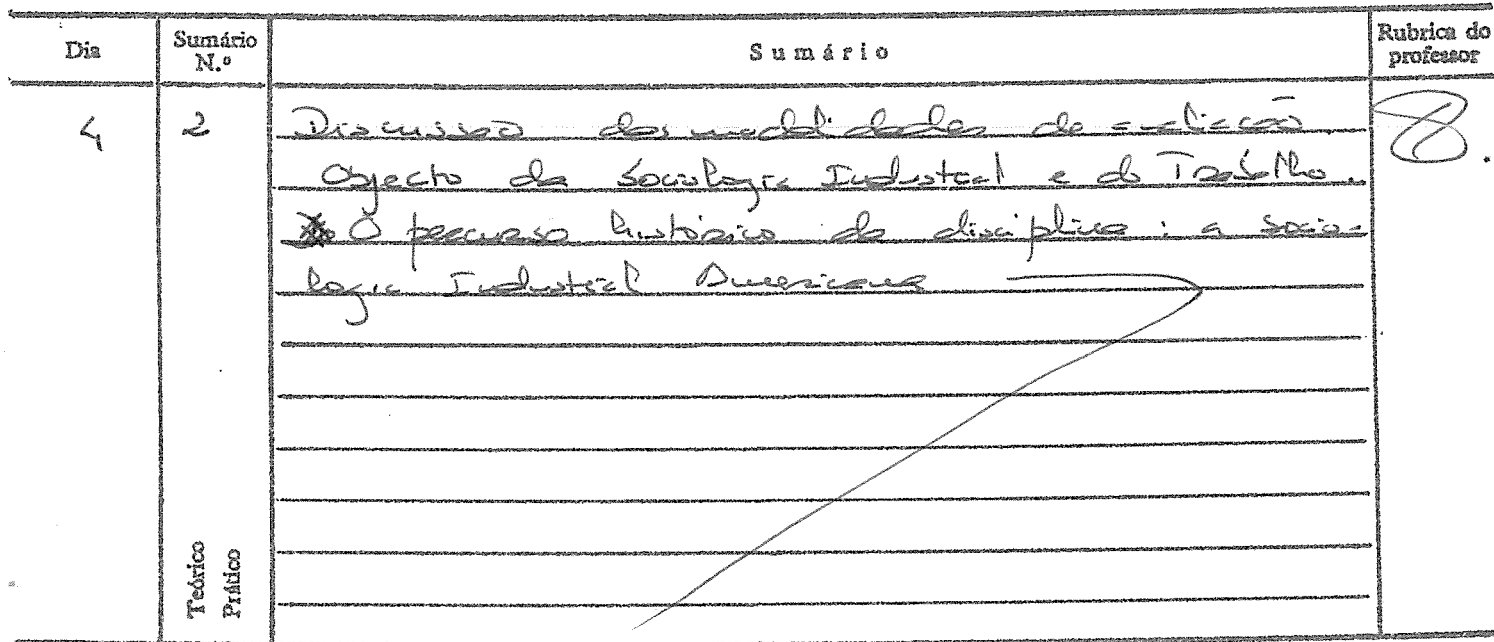 Dia Sumário N.º Sumário Rubrica do professor
4 2 Discussão das modalidades de avaliação.
Objecto da Sociologia Industrial e do Trabalho.
O percurso histórico da disciplina: a socio-
logia Industrial Americana
Teórico
Prático